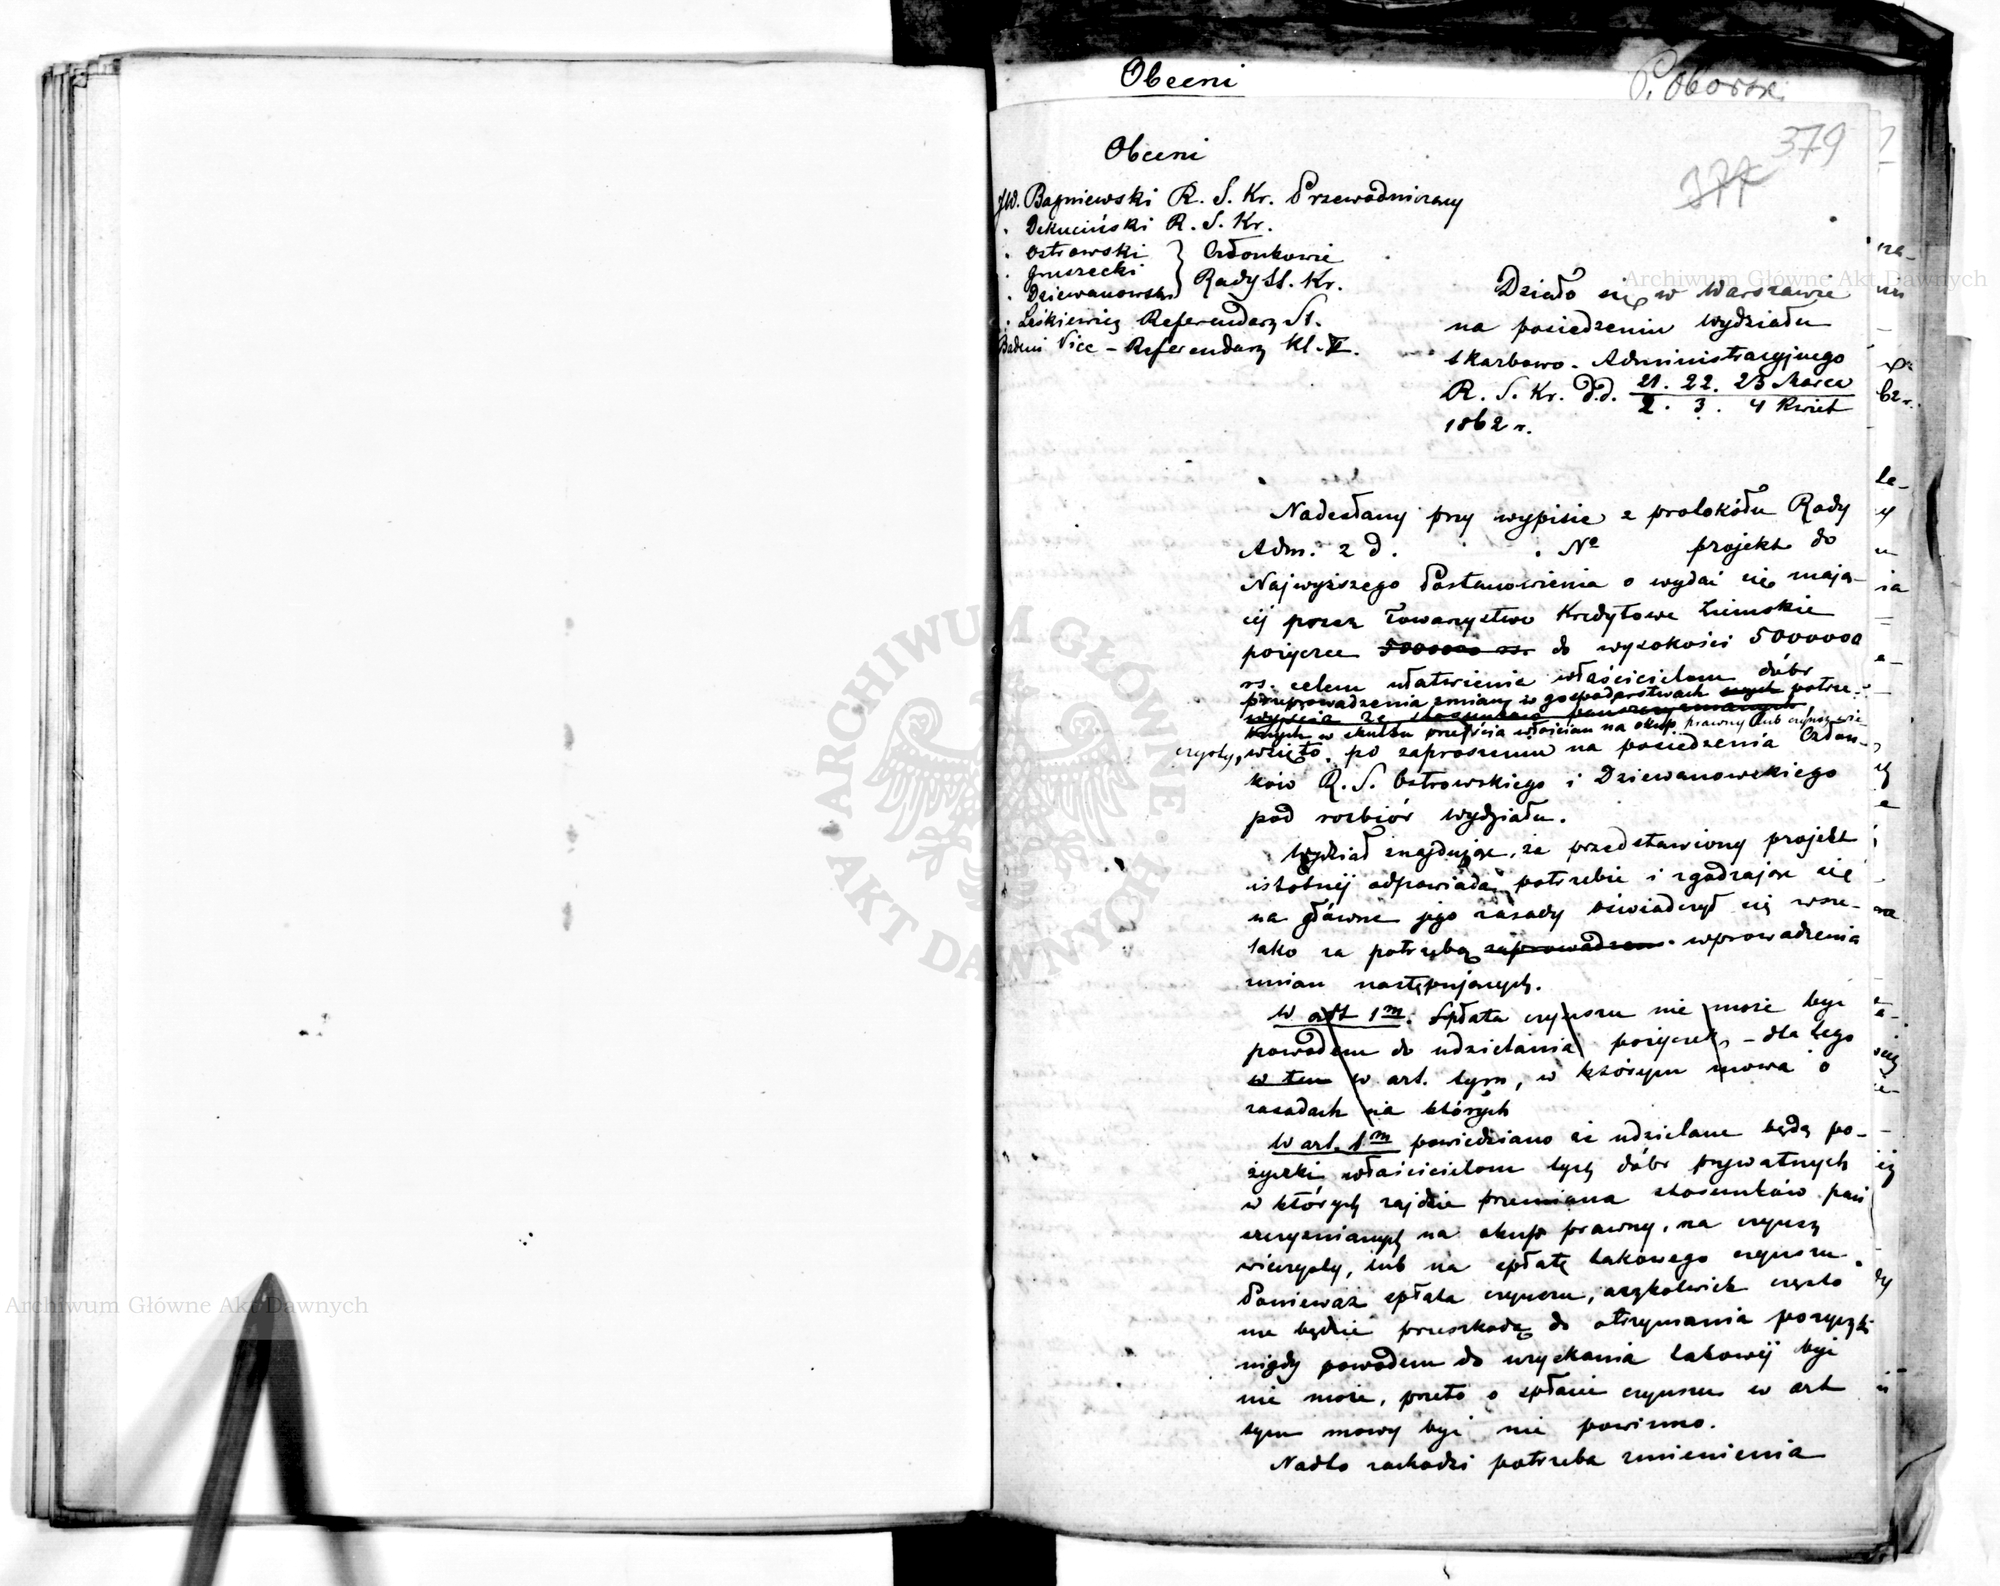 Obecni
P. Oborsk
379
377
Obecni
JW. Bagniewski R. S. Kr. Przewodniczący
" Dekuciński R. S. Kr.
" Ostrowski } Członkowie
" Gruszecki
" Dziewanowski } Rady St. Kr.
" Leśkiewicz Referendarz St.
Badeni Vice-Referendarz Kl. II.
Działo się w Warszawie
na posiedzeniu Wydziału
Skarbowo-Administracyjnego
R. S. Kr. d.d. 21. 22. 23 Marca
2. 3. 4 Kwiet
1862 r.
Nadesłany przy wypisie z protokółu Rady
Adm. z d. No projekt do
Najwyższego Postanowienia o wydać się mają-
cej przez Towarzystwo Kredytowe Ziemskie
pożyczce 5000000 rs. do wysokości 5000000
rs. celem ułatwienia właścicielom dóbr
przeprowadzenia zmiany w gospodarstwach swych potrze-
wyjścia ze stosunków pańszczyźnianych
bnych w skutku przejścia włościan na okup prawny lub czynsz wie-
czysty, wzięto po zaproszeniu na posiedzenia Człon-
ków R. S. Ostrowskiego i Dziewanowskiego
pod rozbiór Wydziału.
Wydział znajdując, że przedstawiony projekt
istotnej odpowiada potrzebie i zgadzając się
na główne jego zasady oświadczył się wsze-
lako za potrzebą zaprowadzen wprowadzenia
zmian następujących.
W art 1m. Spłata czynszu nie może być
powodem do udzielania pożyczek, - dla tego
w tem w art. tym, w którym mowa o
zasadach na których
W art. 1m powiedziano że udzielane będą po-
życzki właścicielom tych dóbr prywatnych
w których zajdzie przemiana stosunków pań
szczyźnianych na okup prawny, na czynsz
wieczysty, lub na spłatę takowego czynszu.
Ponieważ spłata czynszu, aczkolwiek często
nie będzie przeszkodą do otrzymania pożyczki
nigdy powodem do uzyskania takowej być
nie może, przeto o spłacie czynszu w art
tym mowy być nie powinno.
Nadto zachodzi potrzeba zmienienia
Archiwum Główne Akt Dawnych
Archiwum Główne Akt Dawnych
ARCHIWUM GŁÓWNE AKT DAWNYCH